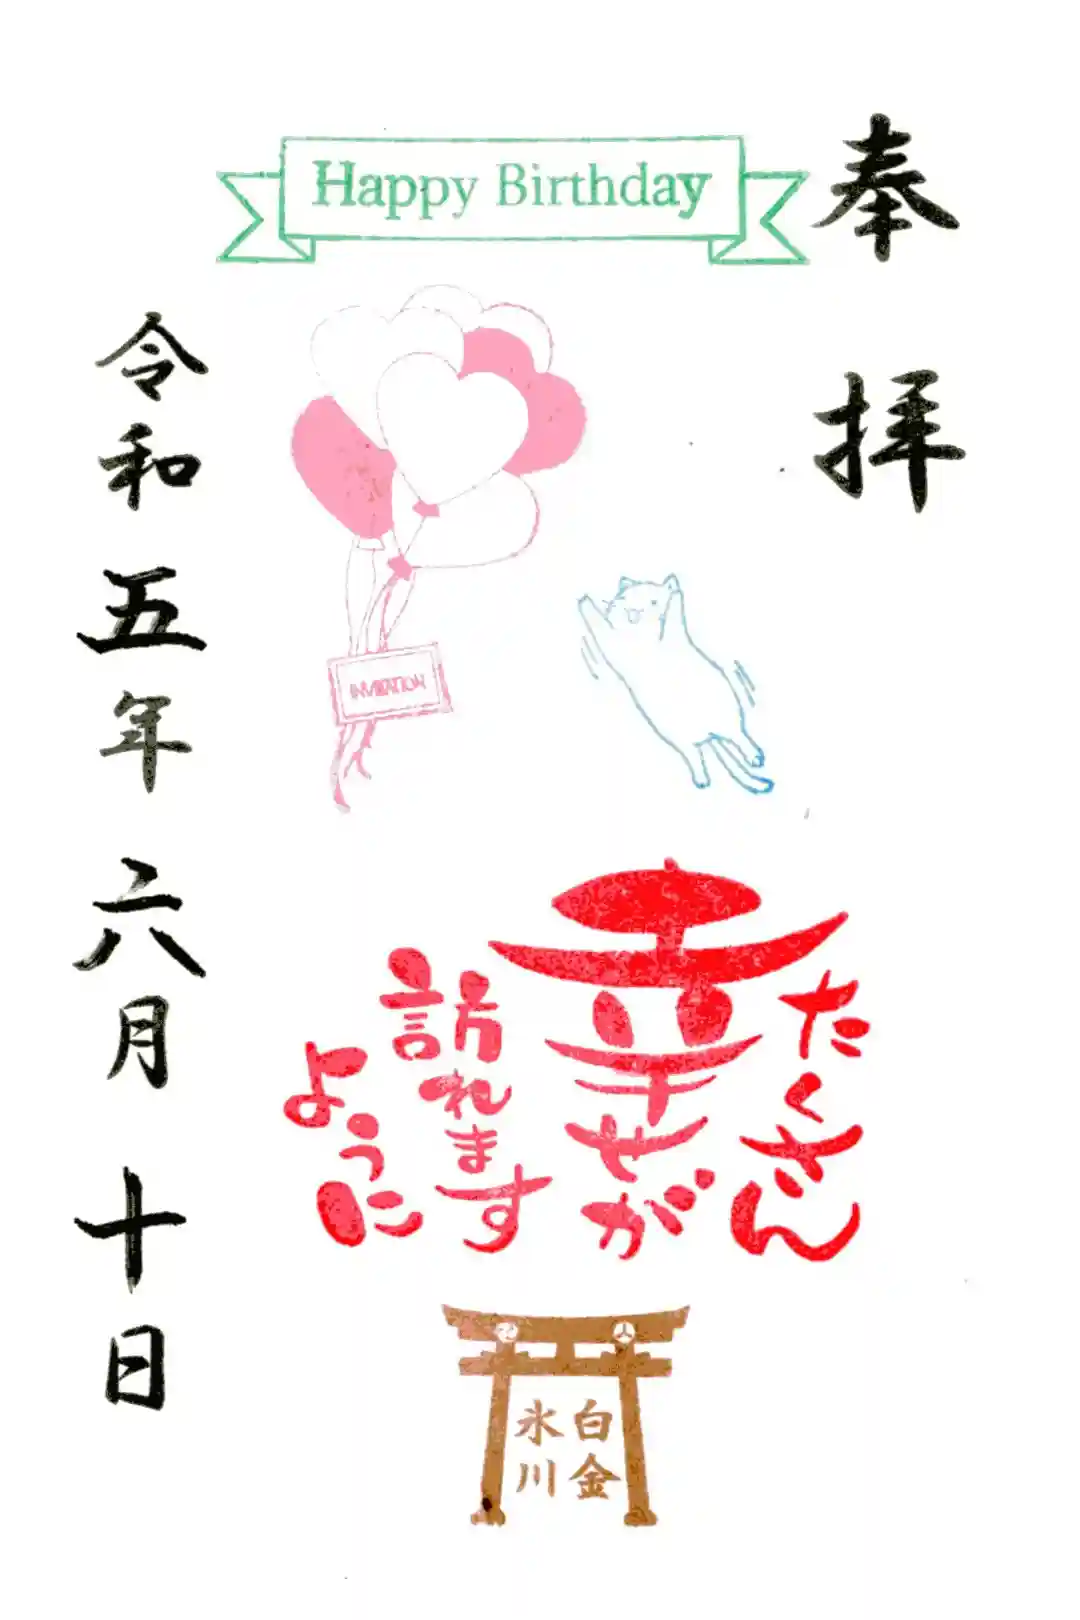 奉拝
Happy Birthday
INVITATION
たくさん
幸せが
訪れます
ように
白金
氷川
令和五年六月十日